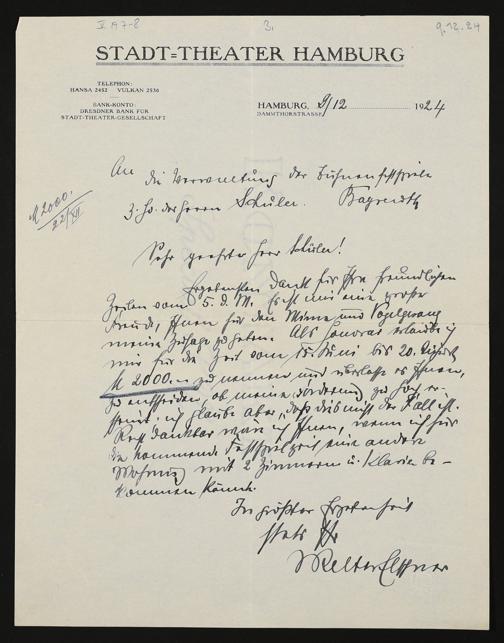 V A 7-8
3.
9.12.24
STADT=THEATER HAMBURG
TELEPHON:
HANSA 2452 VULKAN 2536
BANK-KONTO:
DRESDNER BANK FÜR
STADT-THEATER-GESELLSCHAFT
HAMBURG, 9/12 1924
DAMMTHORSTRASSE
An
die Verwaltung der Bühnenfestspiele
z. Hd. des Herrn Schuler. Bayreuth
M 2000.
22/XII
Sehr geehrter Herr Schuler!
Ergebensten Dank für Ihre freundlichen
Zeilen vom 5. d. M. Es ist mir eine große
Freude, Ihnen für den Mime und Vogelgesang
meine Zusage zu geben. Als Honorar erlaube ich
mir für die Zeit vom 15. Juni bis 20. August
M 2000.- zu nennen und überlasse es Ihnen,
zu entscheiden, ob meine Forderung zu hoch er-
scheint. ich glaube aber, daß dies nicht der Fall ist.
Recht dankbar wäre ich Ihnen, wenn ich für
die kommende Festspielzeit eine andere
Wohnung mit 2 Zimmern u. Klavier be-
kommen könnte.
In größter Ergebenheit
stets Ihr
Walter Elschner